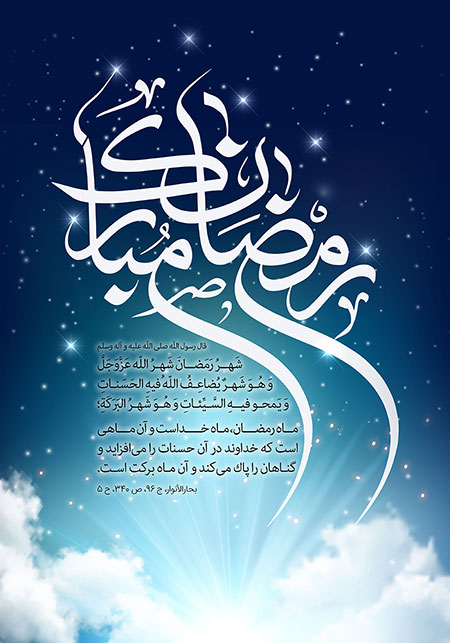 رمضان مبارک
قال رسول الله صلی الله علیه و آله وسلم
شَهرُ رَمَضانَ شَهرُ اللّه عَزَّوَجَلَّ
وَ هُوَ شَهرٌ یُضاعِفُ اللّهُ فیهِ الحَسَناتِ
وَ یَمحو فیهِ السَّیِّئاتِ وَ هُوَ شَهرُ البَرَکَة؛
مـاه رمضـان، مـاه خـداست و آن مـاهـی
است که خداوند در آن حسنات را می‌افزاید و
گناهان را پاک می‌کند و آن ماه برکت است.
بحارالأنوار، ج ۹۶، ص ۳۴۰، ح ۵